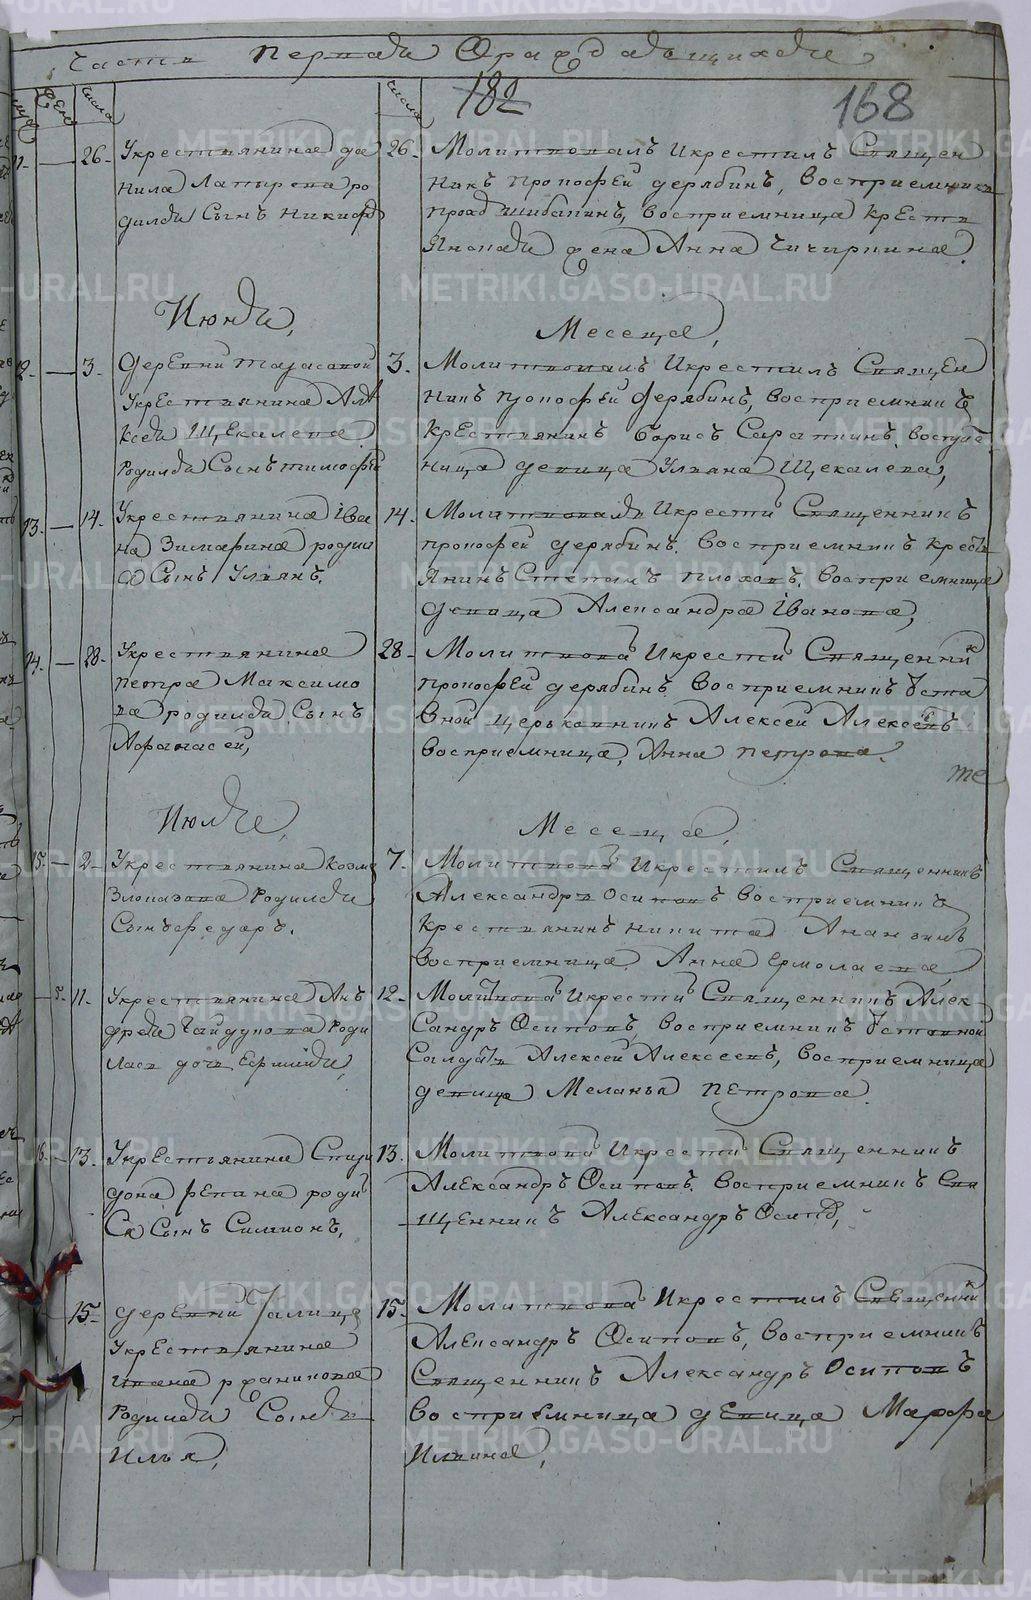 Часть Первая О раждающихся
муж
жен
числа
числа
182
168
11.
26.
У крестьянина да
нила Латырева ро
дился Сынъ Никифо
26.
Молитвовалъ И крестилъ Священ
никъ Прокофей Дерябинъ, Восприемника
Шибакинъ, Восприемница Крестья
Янсковая жена Анна Чичиркина.
Июня,
Месеца,
12.
3.
Деревни
У крестьянина Але
ксея Щекалева.
Родился Сынъ Тимофей
3.
Молитвовалъ И крестилъ Священ
никъ Прокофей Дерябинъ, Восприемникъ
крестьянинъ Борисъ Сараткинъ. Воспріем
ница девица Ульяна Щекалева,
13.
14.
У крестьянина Ива
на Зимарина родил
ся Сынъ Ульянъ.
14.
Молитвовалъ И крестил Священникъ
прокофей Дерябинъ. Восприемникъ крестья
янинъ Степанъ Плоховъ, Восприемница
девица Александра Іванова,
14.
28.
У крестьянина
Петра Максимо
ва родился Сынъ
Афанасей,
28.
Молитвова И крестил Священник
прокофей Дерябинъ. Восприемникъ Уста
вной церьковникъ Алексей Алексеевъ
Восприемница, Анна Петрова.
те
Июля,
Месеца,
15.
2.
У крестьянина Козмы
Злоказова Родился
Сынъ Федоръ.
7.
Молитвова И крестилъ Священникъ
Александръ Осиповъ Восприемникъ
Крестьянинъ Никита Ананьинъ
Восприемница Анна Ермолаева
5.
11.
У крестьянина Ан
дрея Гайдукова Роди
лась дочь Ефимія,
12.
Молитвова И крестил Священникъ Алек
сандръ Осиповъ, Восприемникъ Уставной
Солдатъ Алексей Алексеевъ, Восприемница
девица Меланья Петрова.
16.
13.
У крестьянина Спири
дона Репина роди
ся Сынъ Симионъ,
13.
Молитвова И крестил Священникъ
Александръ Осиповъ. Восприемникъ Свя
щенникъ Александръ Осипов,
15.
Деревни Галица
У крестьянина
Ивана
Родился Сынъ
Илья,
15.
Молитвова И крестилъ Священник
Александръ Осиповъ, Восприемникъ
Священникъ Александръ Осиповъ
Восприемница девица Марфа
Ильина,
METRIKI.GASO-URAL.RU